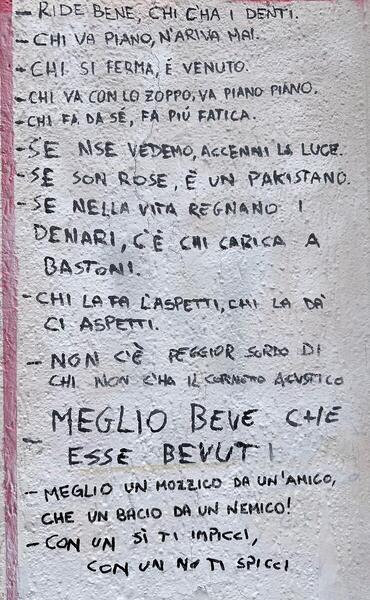 - RIDE BENE, CHI C'HA I DENTI.
- CHI VA PIANO, N'ARIVA MAI.
- CHI SI FERMA, É VENUTO.
- CHI VA CON LO ZOPPO, VA PIANO PIANO.
- CHI FA DA SÉ, FA PIÚ FATICA.
- SE NSE VEDEMO, ACCENNI LA LUCE.
- SE SON ROSE, È UN PAKISTANO.
- SE NELLA VITA REGNANO I
DENARI, C'È CHI CARICA A
BASTONI.
- CHI LA FA L'ASPETTI, CHI LA DÀ
CI ASPETTI.
- NON C'È PEGGIOR SORDO DI
CHI NON C'HA IL CORNETO ACUSTICO
- MEGLIO BEVE CHE
ESSE BEVUTI
- MEGLIO UN MOZZICO DA UN'AMICO,
CHE UN BACIO DA UN NEMICO!
- CON UN SÌ TI IMPICCI,
CON UN NO TI SPICCI